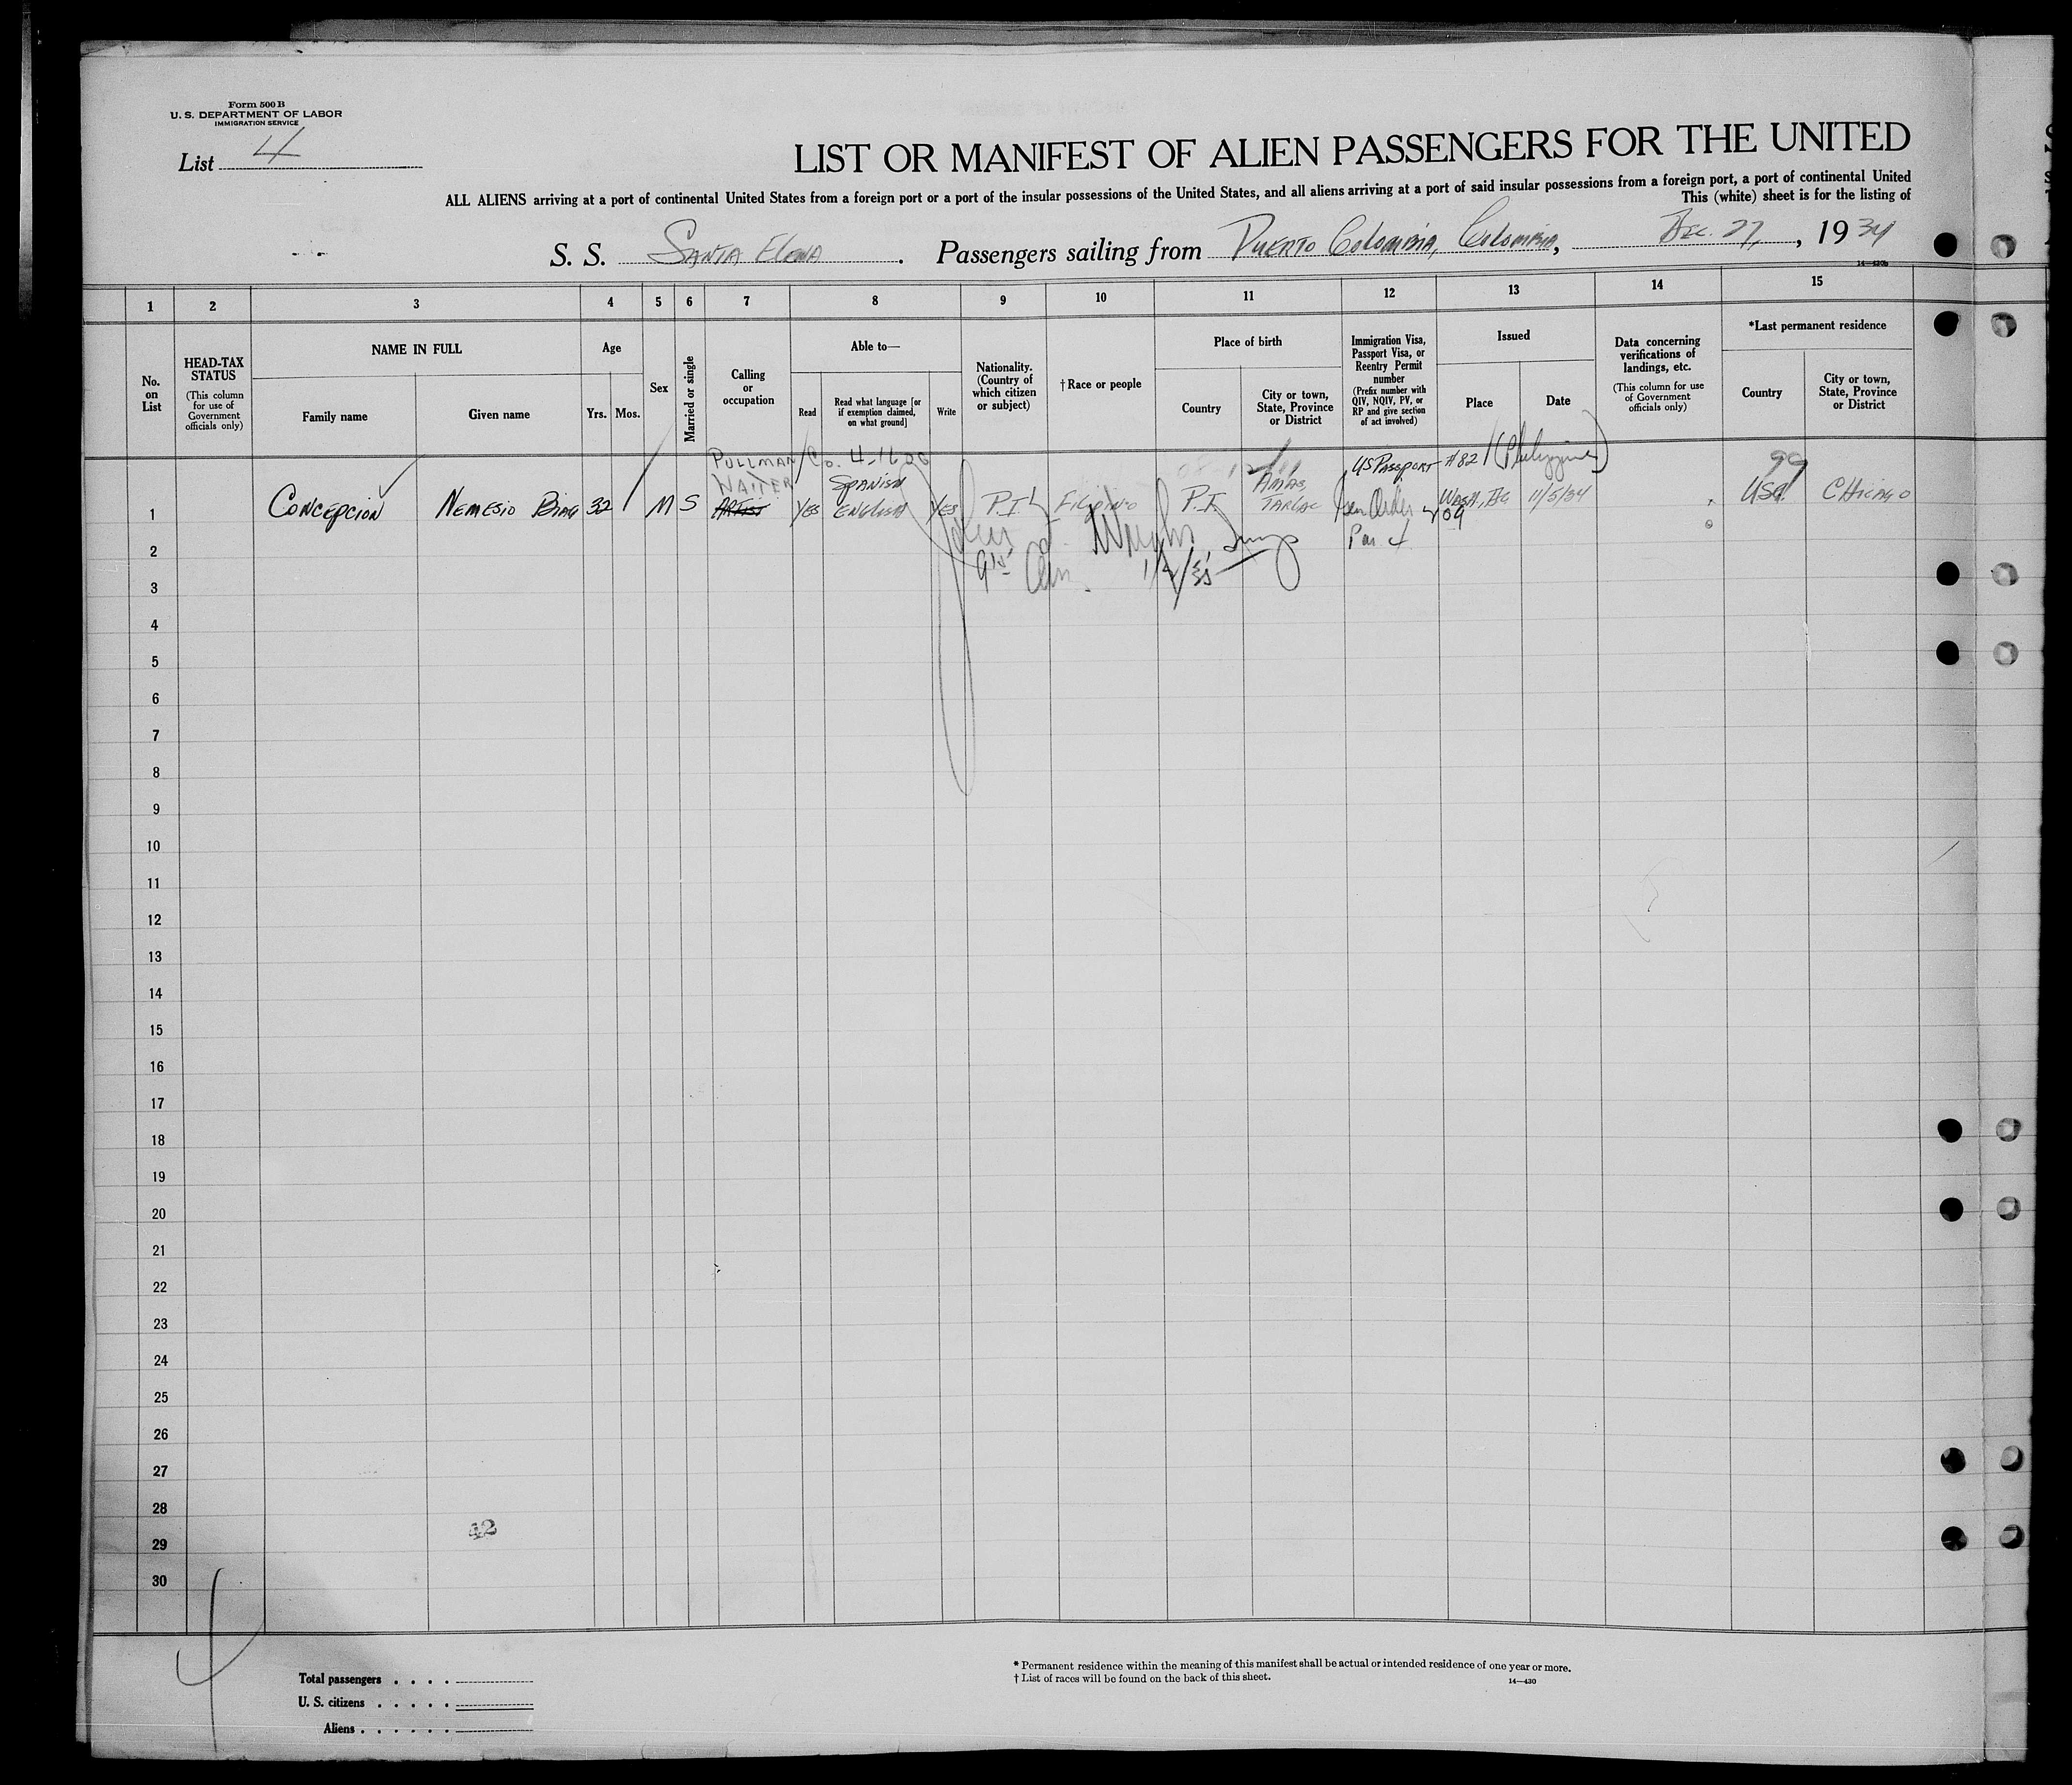 Form 500 B
U. S. DEPARTMENT OF LABOR
IMMIGRATION SERVICE
List 4
LIST OR MANIFEST OF ALIEN PASSENGERS FOR THE UNITED
ALL ALIENS arriving at a port of continental United States from a foreign port or a port of the insular possessions of the United States, and all aliens arriving at a port of said insular possessions from a foreign port, a port of continental United
This (white) sheet is for the listing of
S. S. SANTA ELENA. Passengers sailing from PUERTO COLOMBIA, COLOMBIA, DEC. 27, 1934
14—430b
1 2 3 4 5 6 7 8 9 10 11 12 13 14 15
No. on List
HEAD-TAX STATUS
(This column for use of Government officials only)
NAME IN FULL
Family name
Given name
Age
Yrs.
Mos.
Sex
Married or single
Calling or occupation
Able to—
Read
Read what language [or if exemption claimed, on what ground]
Write
Nationality. (Country of which citizen or subject)
† Race or people
Place of birth
Country
City or town, State, Province or District
Immigration Visa, Passport Visa, or Reentry Permit number
(Prefix number with QIV, NQIV, PV, or RP and give section of act involved)
Issued
Place
Date
Data concerning verifications of landings, etc.
(This column for use of Government officials only)
*Last permanent residence
Country
City or town, State, Province or District
PULLMAN Co. 4-1600
WAITER SPANISH US PASSPORT #821 (Philippines) 99
1 CONCEPCION NEMESIO 32 M S ARTIST YES ENGLISH YES P.I. FILIPINO P.I. TARLAC WASH, DC 11/5/34 USA CHICAGO
Par 4
2
3
4
5
6
7
8
9
10
11
12
13
14
15
16
17
18
19
20
21
22
23
24
25
26
27
28
29
30
42
Total passengers
U. S. citizens
Aliens
* Permanent residence within the meaning of this manifest shall be actual or intended residence of one year or more.
† List of races will be found on the back of this sheet.
14—430